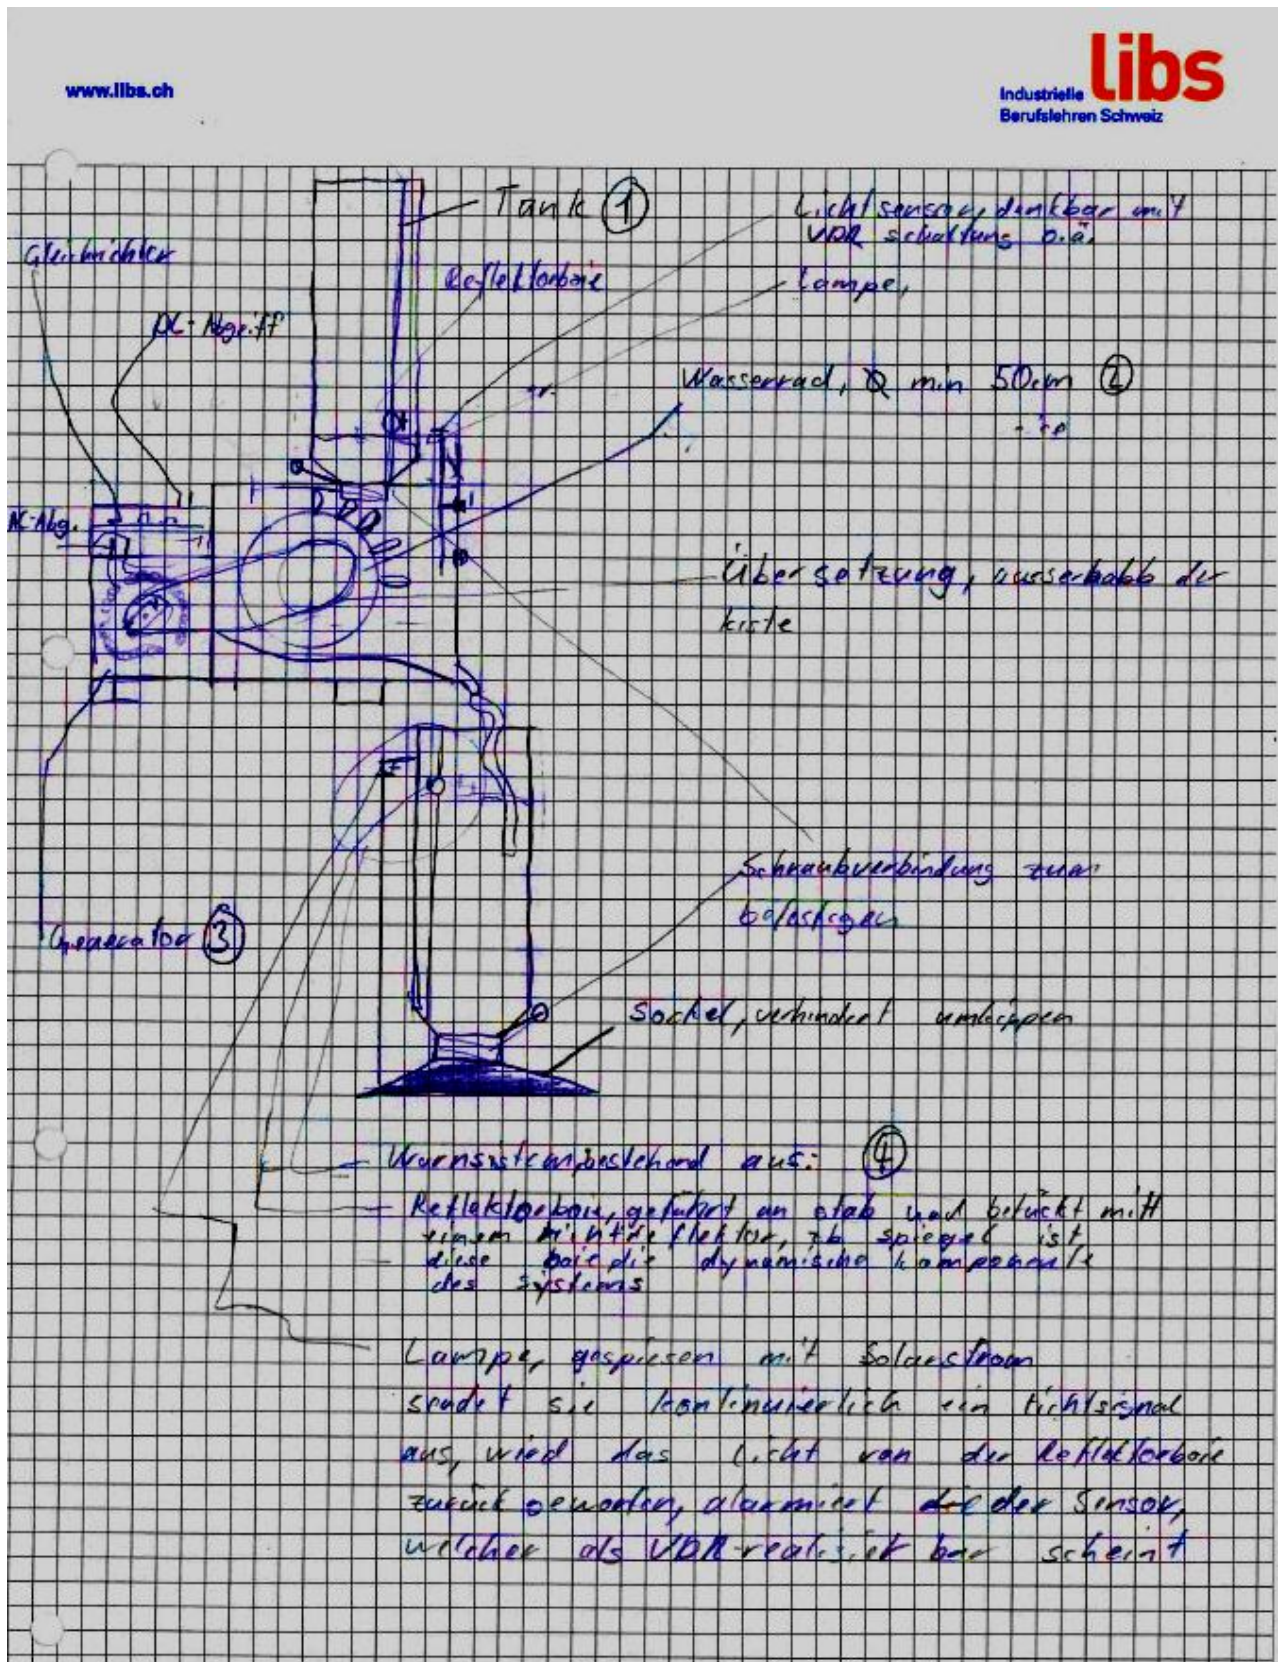 www.libs.ch
libs
Industrielle
Berufslehren Schweiz
Tank ①
Lichtsensor, denkbar mit
VDR schaltung o.ä.
Gleichrichter
Reflektorboie
Lampe,
DC-Abgriff
Wasserrad, Ø min 50cm ②
AC-Abg.
Übersetzung, ausserhalb der
kiste
Schraubverbindung zum
befestigen
Generator ③
Sockel, verhindert umkippen
Warnsistem, bestehend aus: ④
Reflektorboie, geführt an stab und bestückt mitt
einem reflektor, zb spiegel ist
diese boie die dynamische komponente
des systems
Lampe, gespiesen mit Solarstrom
sendet sie kontinuierlich ein lichtsignal
aus, wird das licht von der Reflektorboie
zurück geworfen, alarmiert der Sensor,
welcher als VDR realisierbar scheint